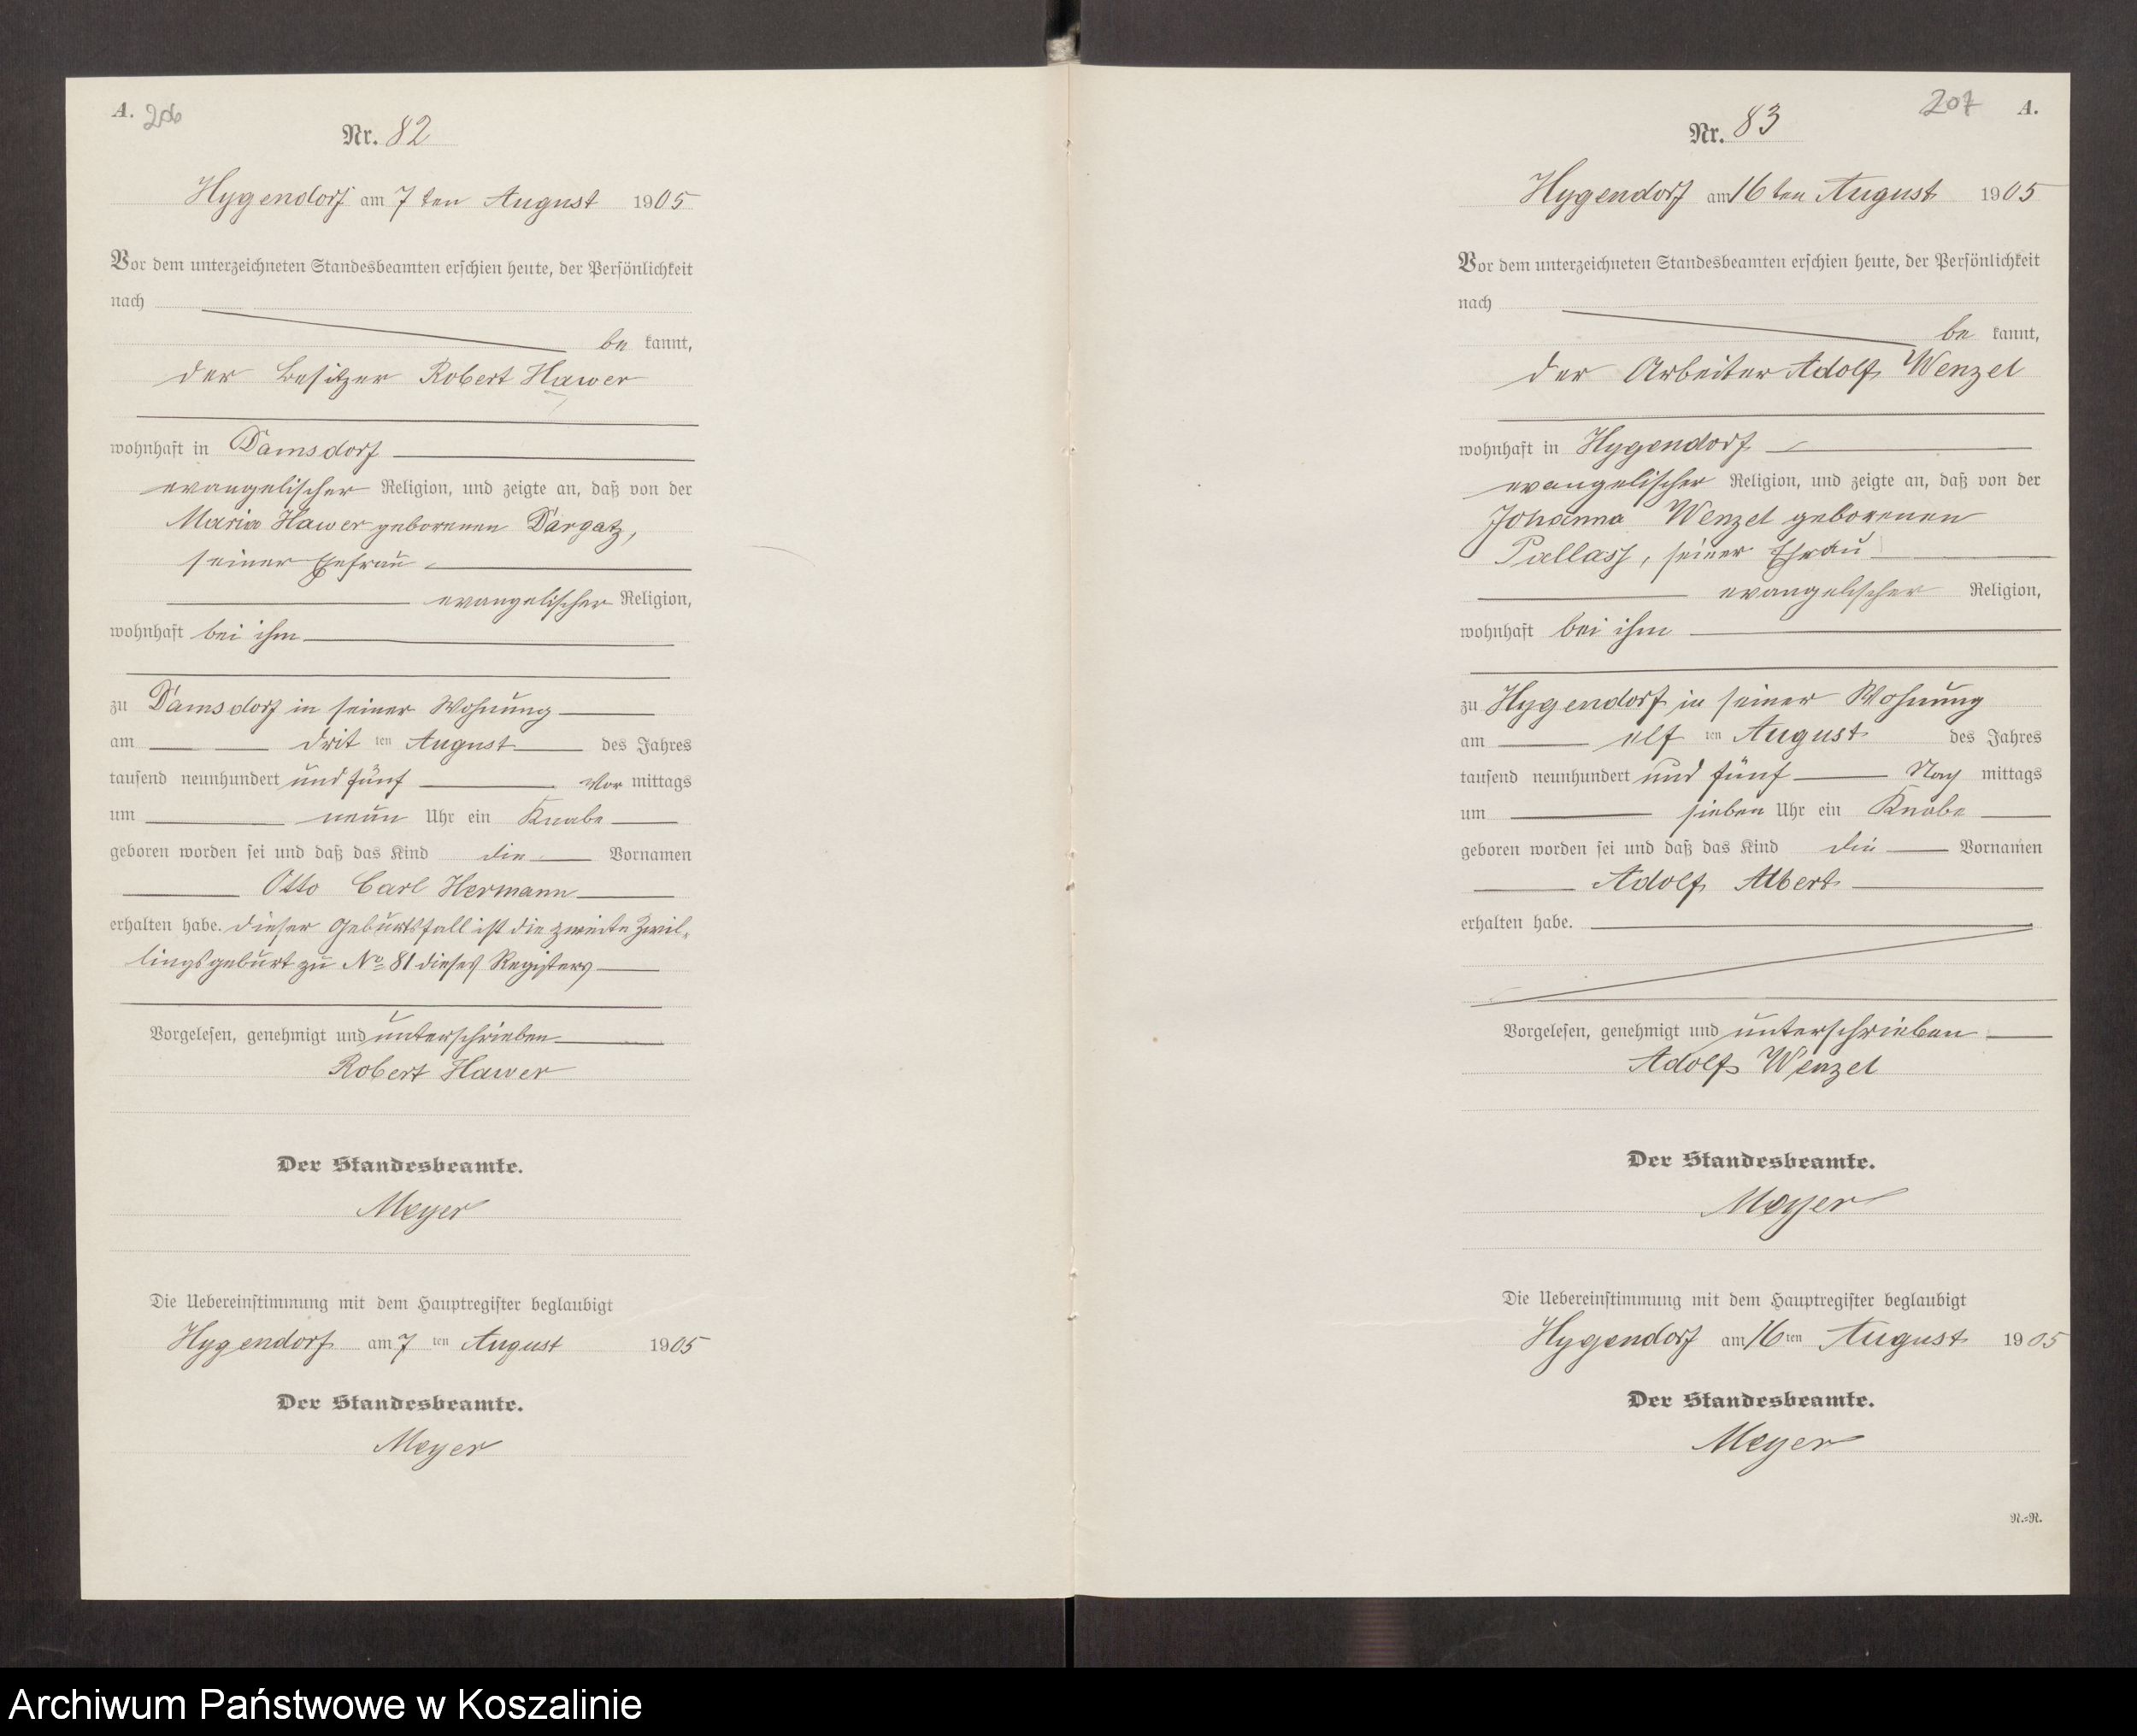 A. 206
Nr. 82
Hygendorf am 7 ten August 1905
Vor dem unterzeichneten Standesbeamten erschien heute, der Persönlichkeit
nach
be kannt,
der Besitzer Robert Hawer
wohnhaft in Damsdorf
evangelischer Religion, und zeigte an, daß von der
Maria Hawer geborenen Dargatz,
seiner Ehefrau
evangelischer Religion,
wohnhaft bei ihm
zu Damsdorf in seiner Wohnung
am drit ten August des Jahres
tausend neunhundert und fünf Vor mittags
um neun Uhr ein Knabe
geboren worden sei und daß das Kind die Vornamen
Otto Carl Hermann
erhalten habe. dieser Geburtsfall ist die zweite Zwil-
lingsgeburt zu No 81 dieses Registers
Vorgelesen, genehmigt und unterschrieben
Robert Hawer
Der Standesbeamte.
Meyer
Die Uebereinstimmung mit dem Hauptregister beglaubigt
Hygendorf am 7 ten August 1905
Der Standesbeamte.
Meyer
207 A.
Nr. 83
Hygendorf am 16 ten August 1905
Vor dem unterzeichneten Standesbeamten erschien heute, der Persönlichkeit
nach
be kannt,
der Arbeiter Adolf Wenzel
wohnhaft in Hygendorf
evangelischer Religion, und zeigte an, daß von der
Johanna Wenzel geborenen
Pallass, seiner Ehefrau
evangelischer Religion,
wohnhaft bei ihm
zu Hygendorf in seiner Wohnung
am elf ten August des Jahres
tausend neunhundert und fünf Nach mittags
um sieben Uhr ein Knabe
geboren worden sei und daß das Kind die Vornamen
Adolf Albert
erhalten habe.
Vorgelesen, genehmigt und unterschrieben
Adolf Wenzel
Der Standesbeamte.
Meyer
Die Uebereinstimmung mit dem Hauptregister beglaubigt
Hygendorf am 16 ten August 1905
Der Standesbeamte.
Meyer
N.=R.
Archiwum Państwowe w Koszalinie